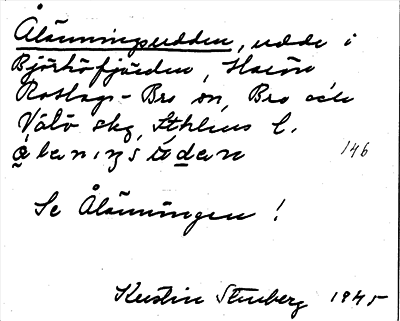 Ålänningsudden, udde i
Björköfjärden, Harön
Roslags-Bro sn, Bro och
Väddö skg, Sthlms l.
ɑlεnıŋsɯ̀dεn 146
Se Ålänningen!
Kerstin Stenberg 1945